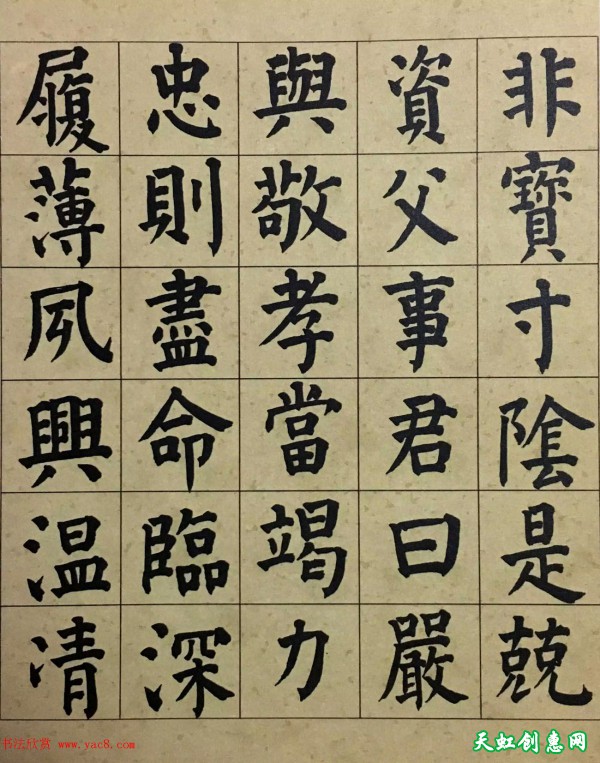 非寶寸陰是兢
資父事君曰嚴
與敬孝當竭力
忠則盡命臨深
履薄夙興温凊
书法欣赏 www.yac8.com
天虹创惠网